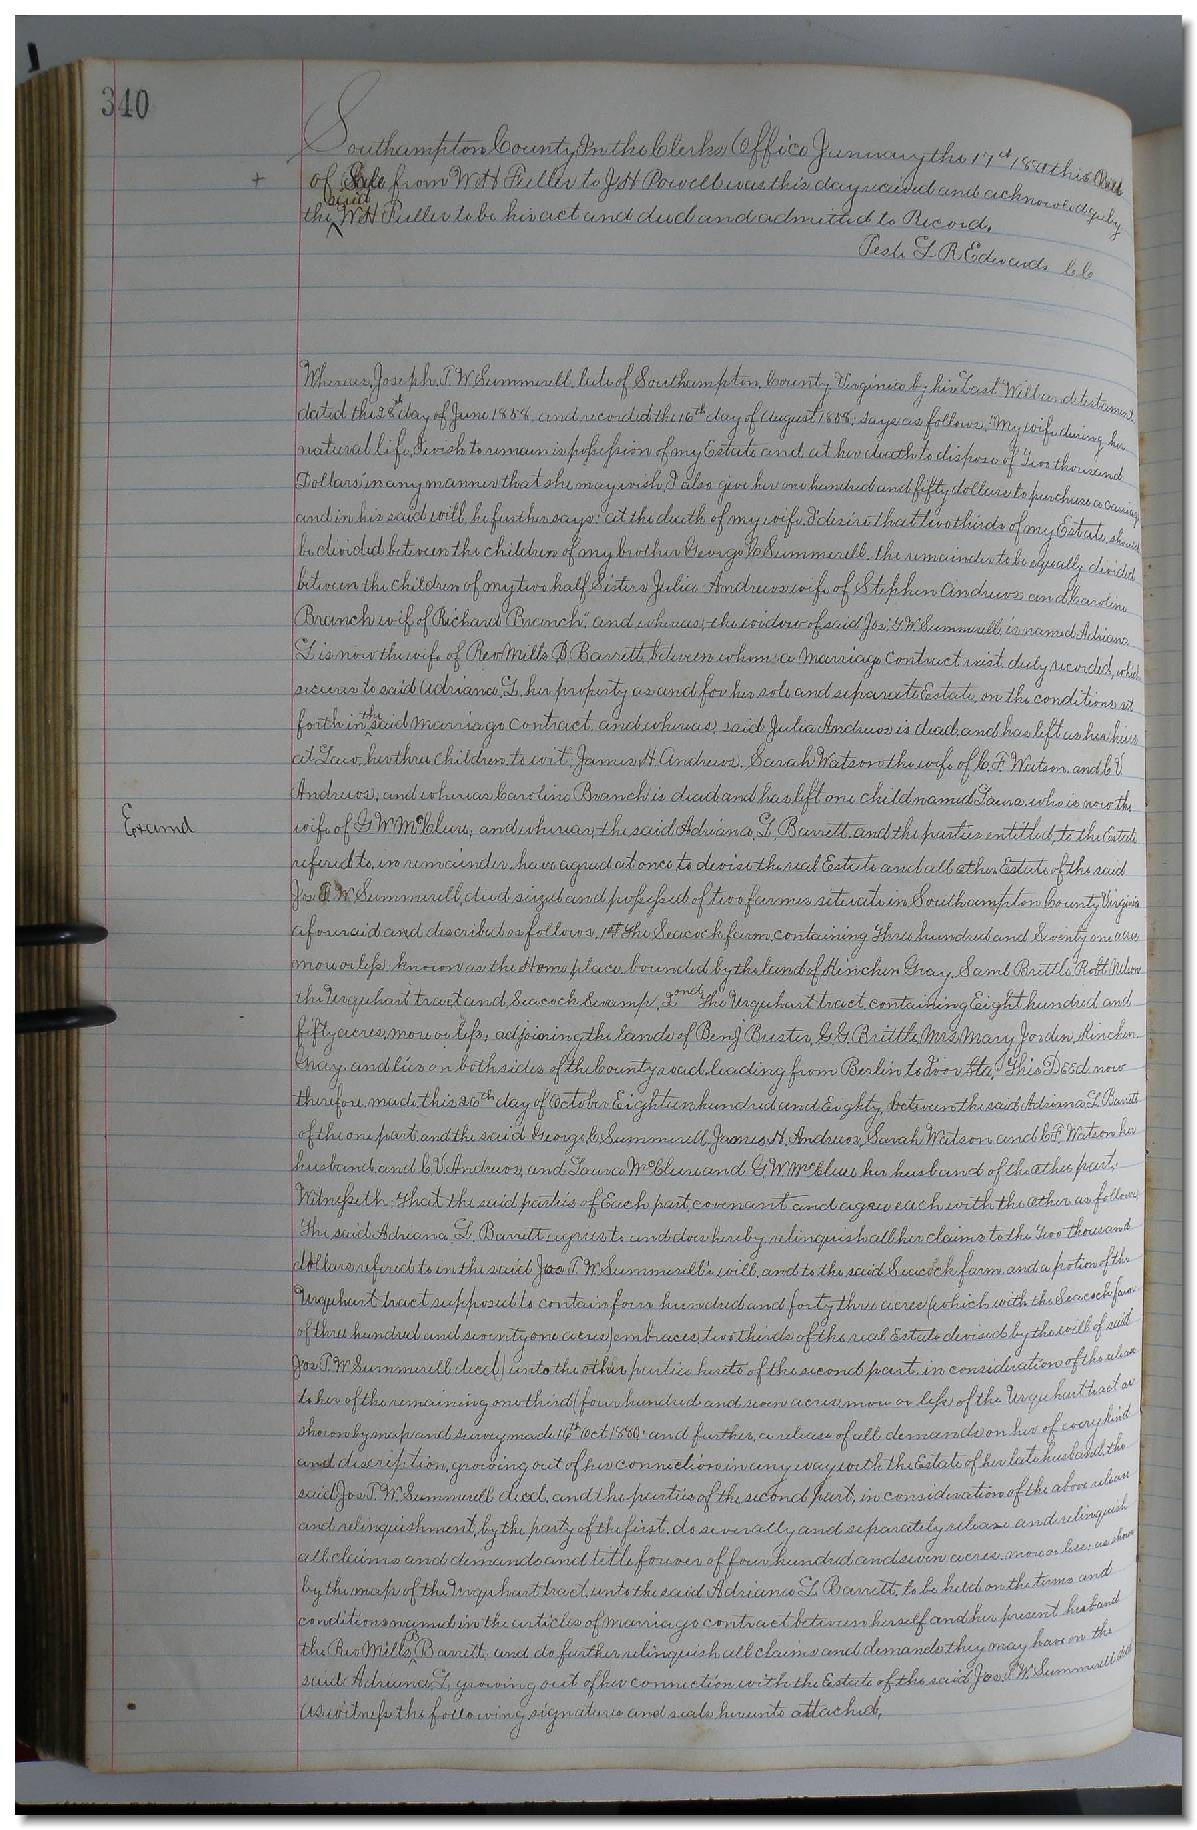 340
Southampton County In the Clerks Office January the 17th this Bill
of Sale from W H Fuller to J H Powell was this day received and acknowledge by
said
the W H Fuller to be his act and deed and admitted to Record.
Teste L R Edwards CC
Whereas, Joseph T. W Summerell, late of Southampton, County Virginia by his Last Will and testament
dated the 28th day of June 1858 and recorded the 16th day of August 1858, says as follows, "My wife during her
natural life, I wish to remain is possession of my Estate and at her death to dispose of Two thousand
Dollars, in any manner that she may wish, I also give her one hundred and fifty dollars to purchase a carriage
and in his said will, he further says: at the death of my wife, I desire that two thirds of my Estate, should
be divided between the children of my brother George Summerell, the remainder to be equally divided
between the children of my two half Sisters Julia Andrews wife of Stephen Andrews and Caroline
Branch wife of Richard Branch", and whereas, the widow of said Jos' W Summerell, is named Adriana
L is now the wife of Rev Mills B Barrett, between whom a marriage contract exist, duly recorded, which
secures to said Adriana, L, her property as and for her sole and separate Estate, on the conditions set
forth in the said marriage contract, and whereas, said Julia Andrews is dead, and has left as her heirs
at Law, her three children, to wit, James H Andrews, Sarah Watson the wife of C. F Watson and C V
Andrews, and whereas Caroline Branch is dead and has left one child named Laura, who is now the
Examd
wife of G W McClure, and whereas, the said Adriana, L, Barrett and the parties entitled, to the Estate
refered to, in remainder, have agreed at once to devise the real Estate and all other Estate of the said
Jos T W Summerell, died seized and possessed of two farms situate in Southampton County Virginia
aforesaid and described as follows, 1st The Seacock farm, containing Three hundred and Seventy one acres
more or less known as the Home place bounded by the land of Hinchen Gray, Saml Brittle Robt
the Urquhart tract and Seacock Swamp, 2nd The Urquhart tract, containing Eight hundred and
fifty acres, more or less, adjoining the lands of Benj G. G. Brittle, Mrs Mary Jorden, Hinchen
Gray, and lies on both sides of the County road, leading from Berlin to Ivor Sta, "This Deed now
therefore made this 20th day of October Eighteen hundred and Eighty, between the said Adriana L Barrett
of the one part and the said George Summerell, James H. Andrews, Sarah Watson and C F Watson her
husband, and C V Andrews, and Laura McClure and G. W McClure her husband of the other part,
Witnesseth, That the said parties of Each part, covenant and agree each with the other as follows
The said Adriana, L. Barrett, agrees to and does hereby relinquish all her claims to the Two thousand
dollars refered to in the said Jos T. W Summerell's will, and to the said Seacock farm and a potion of the
Urquhart tract supposed to contain four hundred and forty three acres (which with the Seacock farm
of three hundred and seventy one acres) embraces, two thirds of the real Estate devised by the will of said
Jos T. W Summerell decd) unto the other parties hereto of the second part, in consideration of the release
to her of the remaining one third (four hundred and seven acres more or less) of the Urquhart tract as
shown by map and survey made 16th Oct 1880, and further, a release of all demands on her of every kind
and discription, growing out of her connection in any way with the Estate of her late husband, the
said Jos T. W Summerell decd, and the parties of the second part, in consideration of the above release
and relinquishment, by the party of the first, do severally and separately release and relinquish
all claims and demands and title forever of four hundred and seven acres, more or less, as shown
by the map of the Urquhart tract, unto the said Adriana L Barrett, to be held on the terms and
conditions named in the articles of marriage contract between herself and her present husband
the Rev Mills B Barrett, and do further relinquish all claims and demands they may have on the
said Adriana, L, growing out of her connection with the Estate of the said Jos. T. W. Summerell decd
As witness the following signatures and seals hereunto attached,